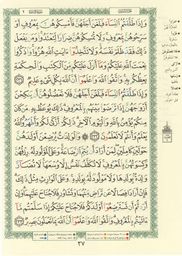 وَإِذَا طَلَّقْتُمُ ٱلنِّسَآءَ فَبَلَغْنَ أَجَلَهُنَّ فَأَمْسِكُوهُنَّ بِمَعْرُوفٍ أَوْ
سَرِّحُوهُنَّ بِمَعْرُوفٍ وَلَا تُمْسِكُوهُنَّ ضِرَارًا لِّتَعْتَدُوا۟ وَمَن يَفْعَلْ
ذَٰلِكَ فَقَدْ ظَلَمَ نَفْسَهُۥ وَلَا تَتَّخِذُوٓا۟ ءَايَٰتِ ٱللَّهِ هُزُوًا وَٱذْكُرُوا۟
نِعْمَتَ ٱللَّهِ عَلَيْكُمْ وَمَآ أَنزَلَ عَلَيْكُم مِّنَ ٱلْكِتَٰبِ وَٱلْحِكْمَةِ
يَعِظُكُم بِهِۦ وَٱتَّقُوا۟ ٱللَّهَ وَٱعْلَمُوٓا۟ أَنَّ ٱللَّهَ بِكُلِّ شَىْءٍ عَلِيمٌ ٢٣١
وَإِذَا طَلَّقْتُمُ ٱلنِّسَآءَ فَبَلَغْنَ أَجَلَهُنَّ فَلَا تَعْضُلُوهُنَّ أَن يَنكِحْنَ
أَزْوَٰجَهُنَّ إِذَا تَرَٰضَوْا۟ بَيْنَهُم بِٱلْمَعْرُوفِ ذَٰلِكَ يُوعَظُ بِهِۦ مَن كَانَ
مِنكُمْ يُؤْمِنُ بِٱللَّهِ وَٱلْيَوْمِ ٱلْءَاخِرِ ذَٰلِكُمْ أَزْكَىٰ لَكُمْ وَأَطْهَرُ وَٱللَّهُ
يَعْلَمُ وَأَنتُمْ لَا تَعْلَمُونَ ٢٣٢ وَٱلْوَٰلِدَٰتُ يُرْضِعْنَ أَوْلَٰدَهُنَّ
حَوْلَيْنِ كَامِلَيْنِ لِمَنْ أَرَادَ أَن يُتِمَّ ٱلرَّضَاعَةَ وَعَلَى ٱلْمَوْلُودِ لَهُۥ رِزْقُهُنَّ
وَكِسْوَتُهُنَّ بِٱلْمَعْرُوفِ لَا تُكَلَّفُ نَفْسٌ إِلَّا وُسْعَهَا لَا تُضَآرَّ
وَٰلِدَةٌۢ بِوَلَدِهَا وَلَا مَوْلُودٌ لَّهُۥ بِوَلَدِهِۦ وَعَلَى ٱلْوَارِثِ مِثْلُ ذَٰلِكَ
فَإِنْ أَرَادَا فِصَالًا عَن تَرَاضٍ مِّنْهُمَا وَتَشَاوُرٍ فَلَا جُنَاحَ عَلَيْهِمَا وَإِنْ
أَرَدتُّمْ أَن تَسْتَرْضِعُوٓا۟ أَوْلَٰدَكُمْ فَلَا جُنَاحَ عَلَيْكُمْ إِذَا سَلَّمْتُم مَّآ
ءَاتَيْتُم بِٱلْمَعْرُوفِ وَٱتَّقُوا۟ ٱللَّهَ وَٱعْلَمُوٓا۟ أَنَّ ٱللَّهَ بِمَا تَعْمَلُونَ بَصِيرٌ ٢٣٣
٣٧